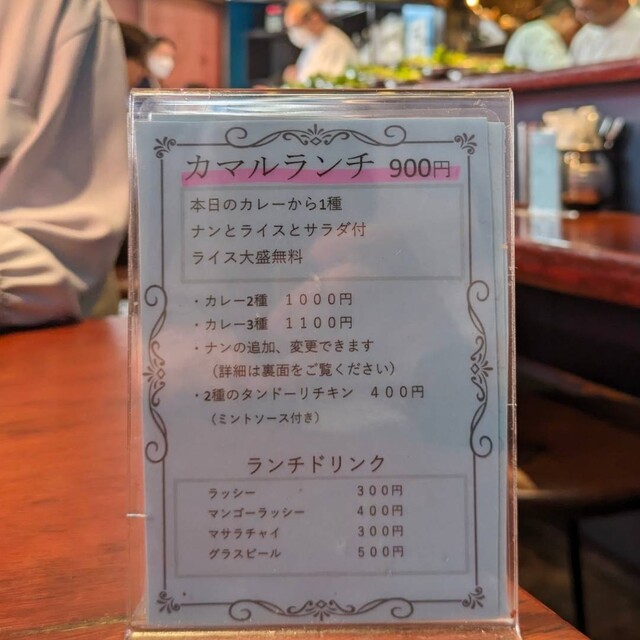 カマルランチ 900円
本日のカレーから1種
ナンとライスとサラダ付
ライス大盛無料
・カレー2種 １０００円
・カレー3種 １１００円
・ナンの追加、変更できます
（詳細は裏面をご覧ください）
・2種のタンドーリチキン ４００円
（ミントソース付き）
ランチドリンク
ラッシー ３００円
マンゴーラッシー ４００円
マサラチャイ ３００円
グラスビール ５００円